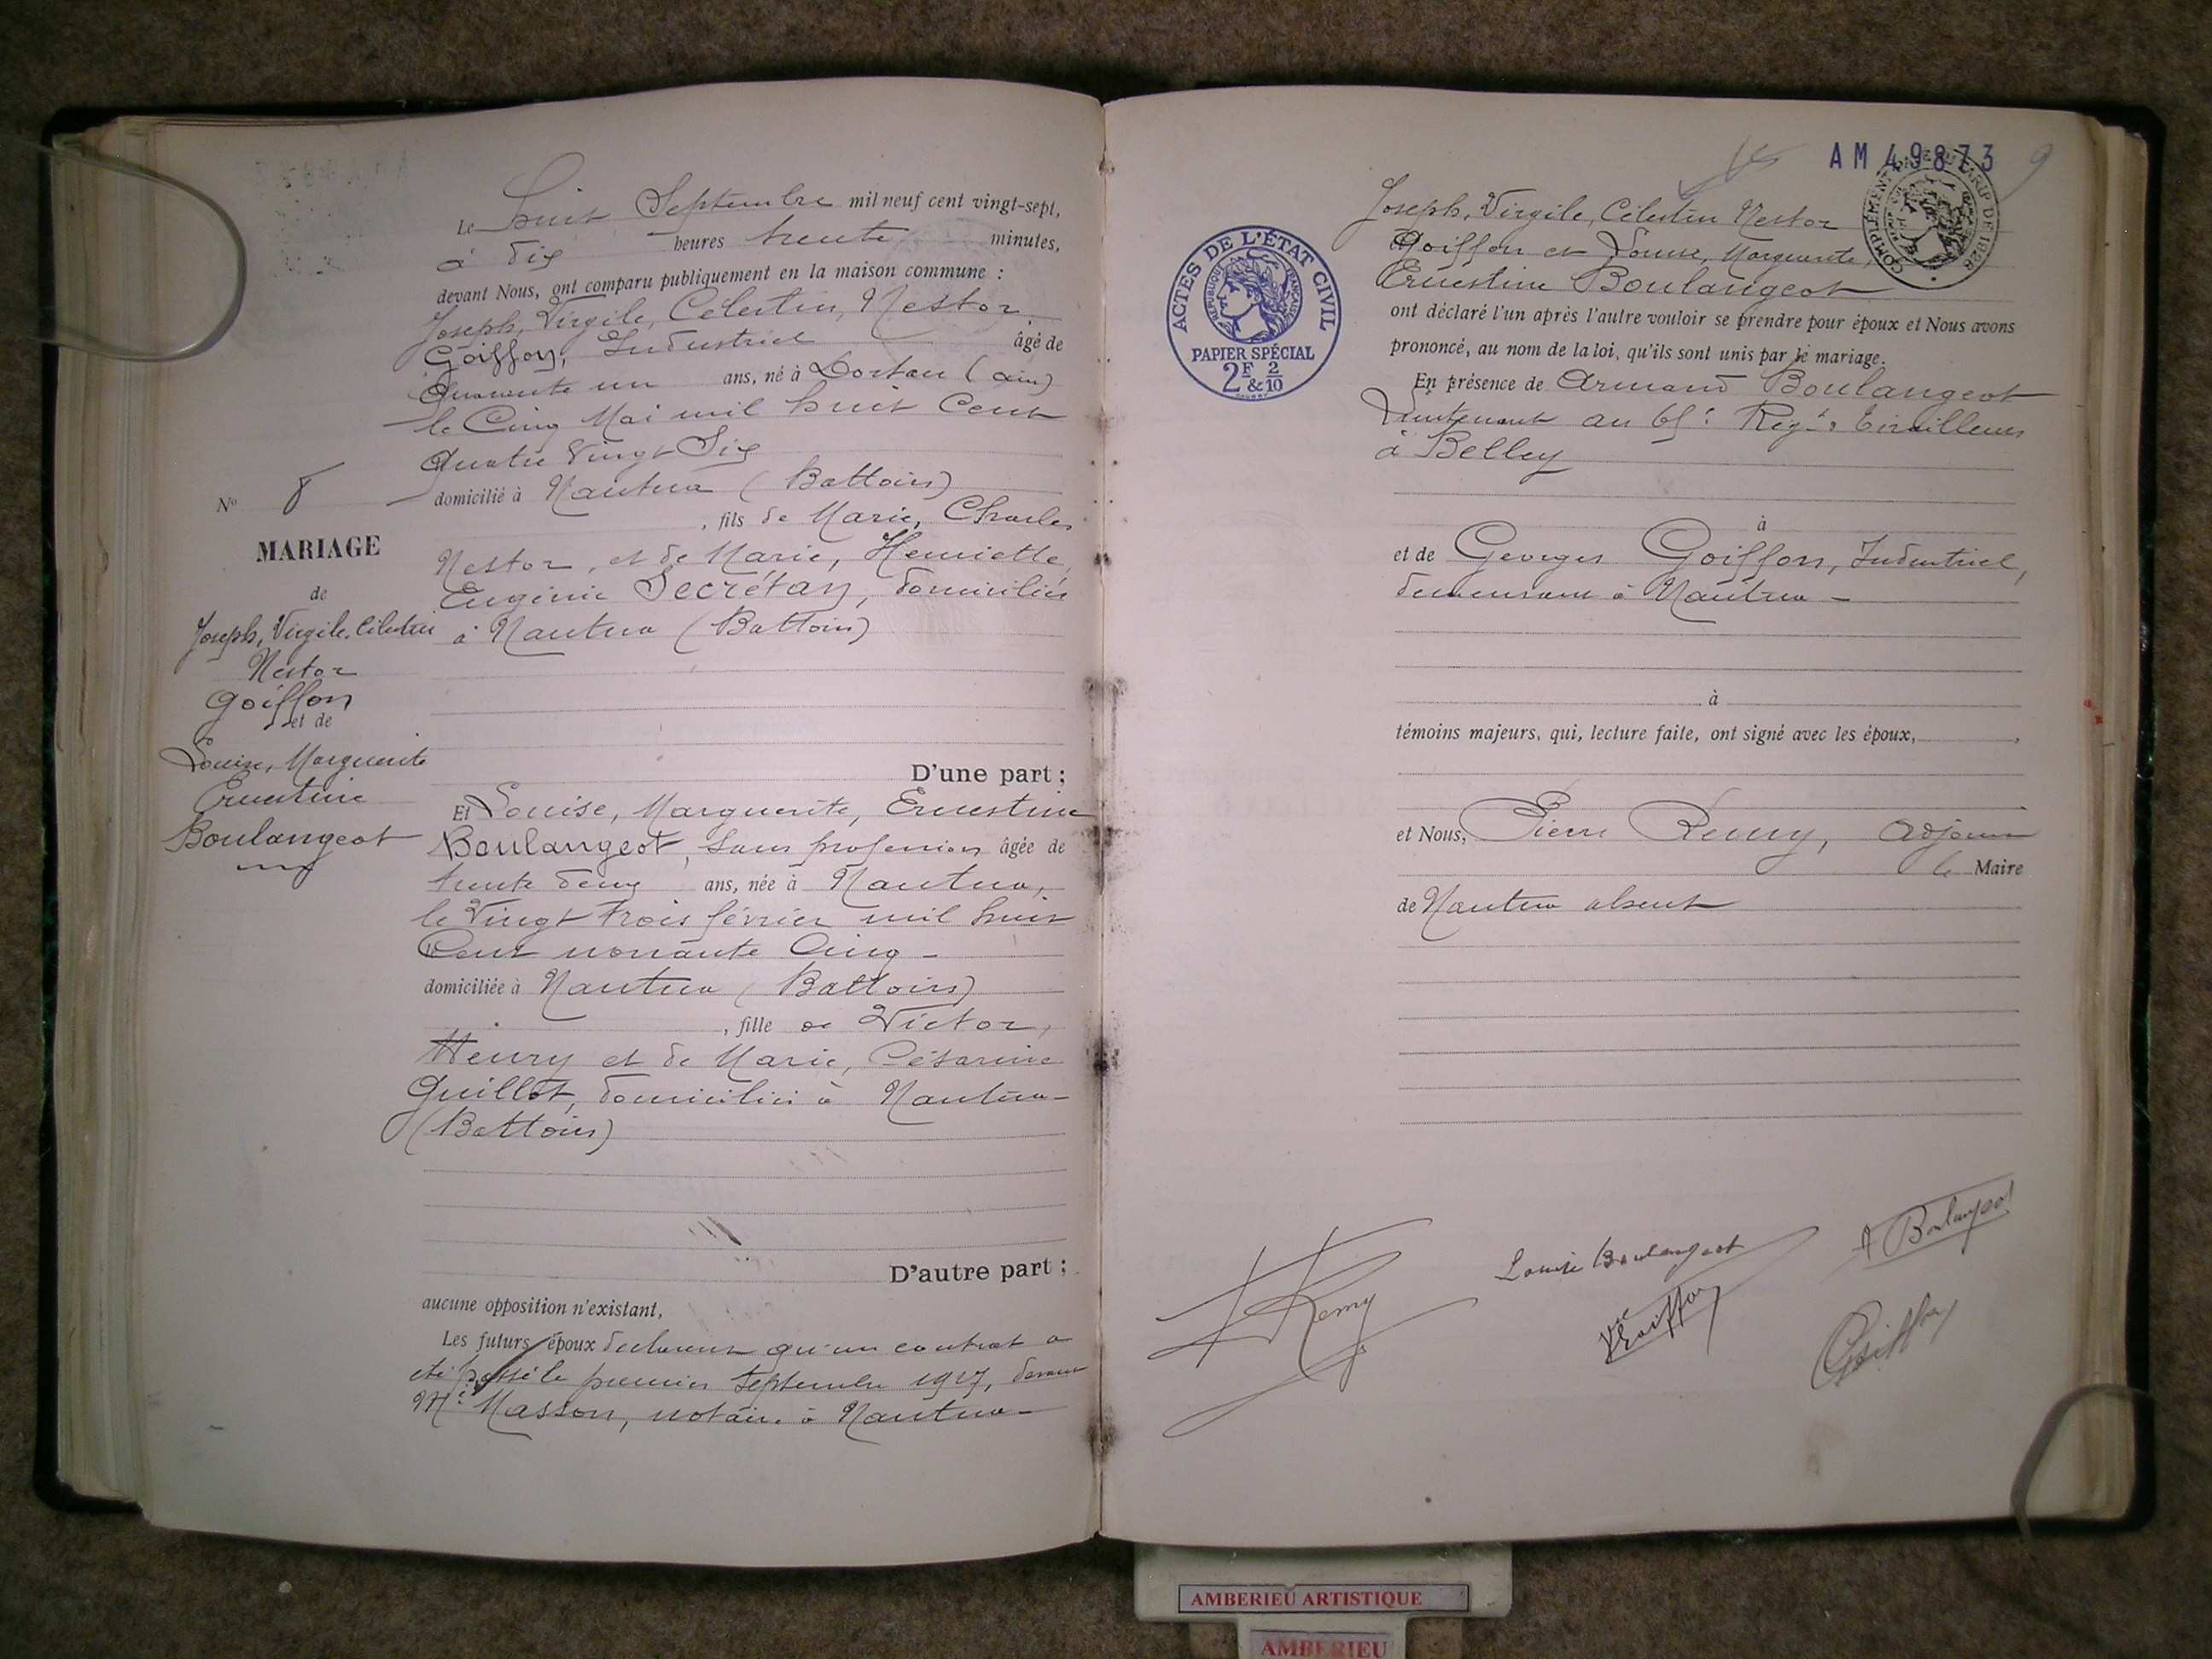 Le huit Septembre mil neuf cent vingt-sept,
à dix heures trente minutes,
devant Nous, ont comparu publiquement en la maison commune :
Joseph, Virgile, Célestin, Nestor
Goiffon, Industriel âgé de
Quarante un ans, né à Dortan (Ain)
le Cinq Mai mil huit Cent
Quatre Vingt Six
domicilié à Nantua (Battoirs)
, fils de Marie, Charles
Nestor, et de Marie, Henriette,
Eugénie Secrétan, domiciliés
à Nantua (Battoirs)
D'une part ;
Et Louise, Marguerite, Ernestine
Boulangeot, sans profession âgée de
trente deux ans, née à Nantua,
le Vingt trois février mil huit
Cent nonante Cinq -
domiciliée à Nantua (Battoirs)
, fille de Victor,
Henry et de Marie, Césarine
Guillot, domiciliés à Nantua -
(Battoirs)
D'autre part ;
aucune opposition n'existant,
Les futurs époux déclarent qu'un contrat a
été passé le premier Septembre 1927, devant
Me Masson, notaire à Nantua -
No 8
MARIAGE
de
Joseph, Virgile, Célestin
Nestor
Goiffon
et de
Louise, Marguerite
Ernestine
Boulangeot
AM 49873
9
COMPLÉMENT TARIF DE 1926
ACTES DE L'ÉTAT CIVIL
RÉPUBLIQUE FRANÇAISE
PAPIER SPÉCIAL
2F & 2/10
Joseph, Virgile, Célestin Nestor
Goiffon et Louise, Marguerite,
Ernestine Boulangeot
ont déclaré l'un après l'autre vouloir se prendre pour époux et Nous avons
prononcé, au nom de la loi, qu'ils sont unis par le mariage.
En présence de Armand Boulangeot
Lieutenant au Régt Tirailleurs
à Belley
à
et de Georges Goiffon, Industriel,
demeurant à Nantua -
à
témoins majeurs, qui, lecture faite, ont signé avec les époux,
et Nous, Pierre Remy, Adjoint
le Maire
de Nantua absent
Remy
Louise Boulangeot
A Boulangeot
Goiffon
Goiffon
AMBERIEU ARTISTIQUE
AMBERIEU